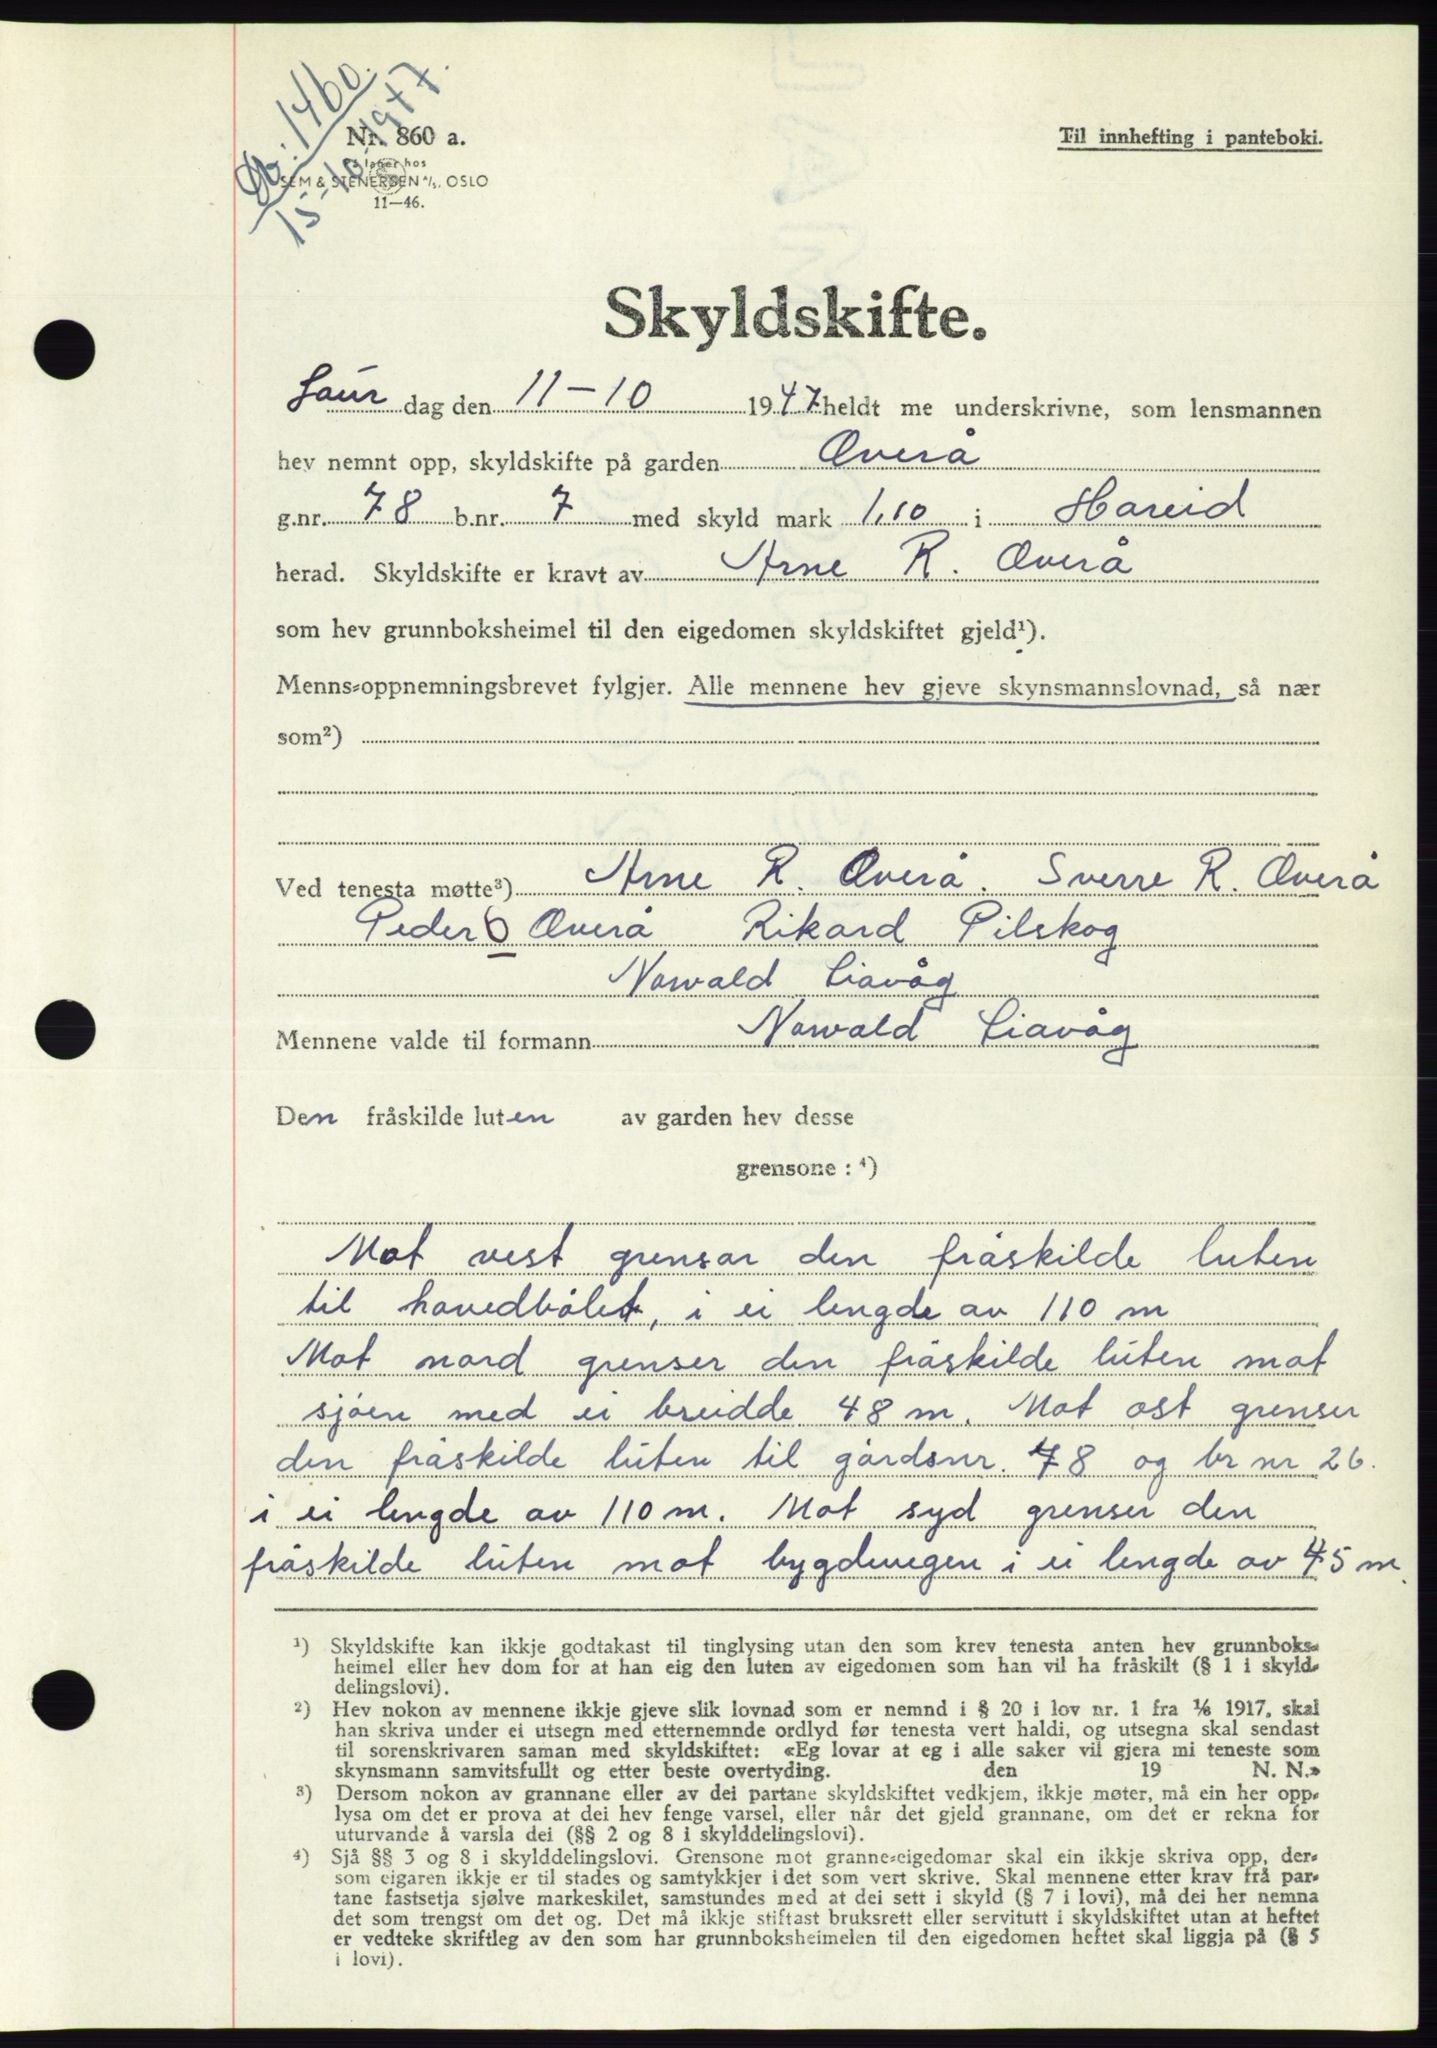 Db. 1460.
15-10-1947.
Nr. 860 a.
På lager hos
SEM & STENERSEN A/S, OSLO
11—46.
Til innhefting i panteboki.
Skyldskifte.
Laur dag den 11-10 1947 heldt me underskrivne, som lensmannen
hev nemnt opp, skyldskifte på garden Overå
g.nr. 78 b.nr. 7 med skyld mark 1,10 i Hareid
herad. Skyldskifte er kravt av Arne R. Overå
som hev grunnboksheimel til den eigedomen skyldskiftet gjeld¹).
Menns-oppnemningsbrevet fylgjer. Alle mennene hev gjeve skynsmannslovnad, så nær
som²)
Ved tenesta møtte³) Arne R. Overå. Sverre R. Overå
Peder O Overå Rikard Pilskog
Norvald Liavåg
Mennene valde til formann Norvald Liavåg
Den fråskilde luten av garden hev desse
grensone : ⁴)
Mot vest grensar den fråskilde luten
til hovedbølet, i ei lengde av 110 m
Mot nord grenser den fråskilde luten mot
sjøen med ei breidde 48 m. Mot ost grenser
den fråskilde luten til gårdsnr. 78 og br nr 26.
i ei lengde av 110 m. Mot syd grenser den
fråskilde luten mot bygdevegen i ei lengde av 45 m.
¹) Skyldskifte kan ikkje godtakast til tinglysing utan den som krev tenesta anten hev grunnboks-
heimel eller hev dom for at han eig den luten av eigedomen som han vil ha fråskilt (§ 1 i skyld-
delingslovi).
²) Hev nokon av mennene ikkje gjeve slik lovnad som er nemnd i § 20 i lov nr. 1 fra 1/6 1917, skal
han skriva under ei utsegn med etternemnde ordlyd før tenesta vert haldi, og utsegna skal sendast
til sorenskrivaren saman med skyldskiftet: «Eg lovar at eg i alle saker vil gjera mi teneste som
skynsmann samvitsfullt og etter beste overtyding. den 19 N. N.»
³) Dersom nokon av grannane eller av dei partane skyldskiftet vedkjem, ikkje møter, må ein her opp-
lysa om det er prova at dei hev fenge varsel, eller når det gjeld grannane, om det er rekna for
uturvande å varsla dei (§§ 2 og 8 i skylddelingslovi).
⁴) Sjå §§ 3 og 8 i skylddelingslovi. Grensone mot granne-eigedomar skal ein ikkje skriva opp, der-
som eigaren ikkje er til stades og samtykkjer i det som vert skrive. Skal mennene etter krav frå par-
tane fastsetja sjølve markeskilet, samstundes med at dei sett i skyld (§ 7 i lovi), må dei her nemna
det som trengst om det og. Det må ikkje stiftast bruksrett eller servitutt i skyldskiftet utan at heftet
er vedteke skriftleg av den som har grunnboksheimelen til den eigedomen heftet skal liggja på (§ 5
i lovi).